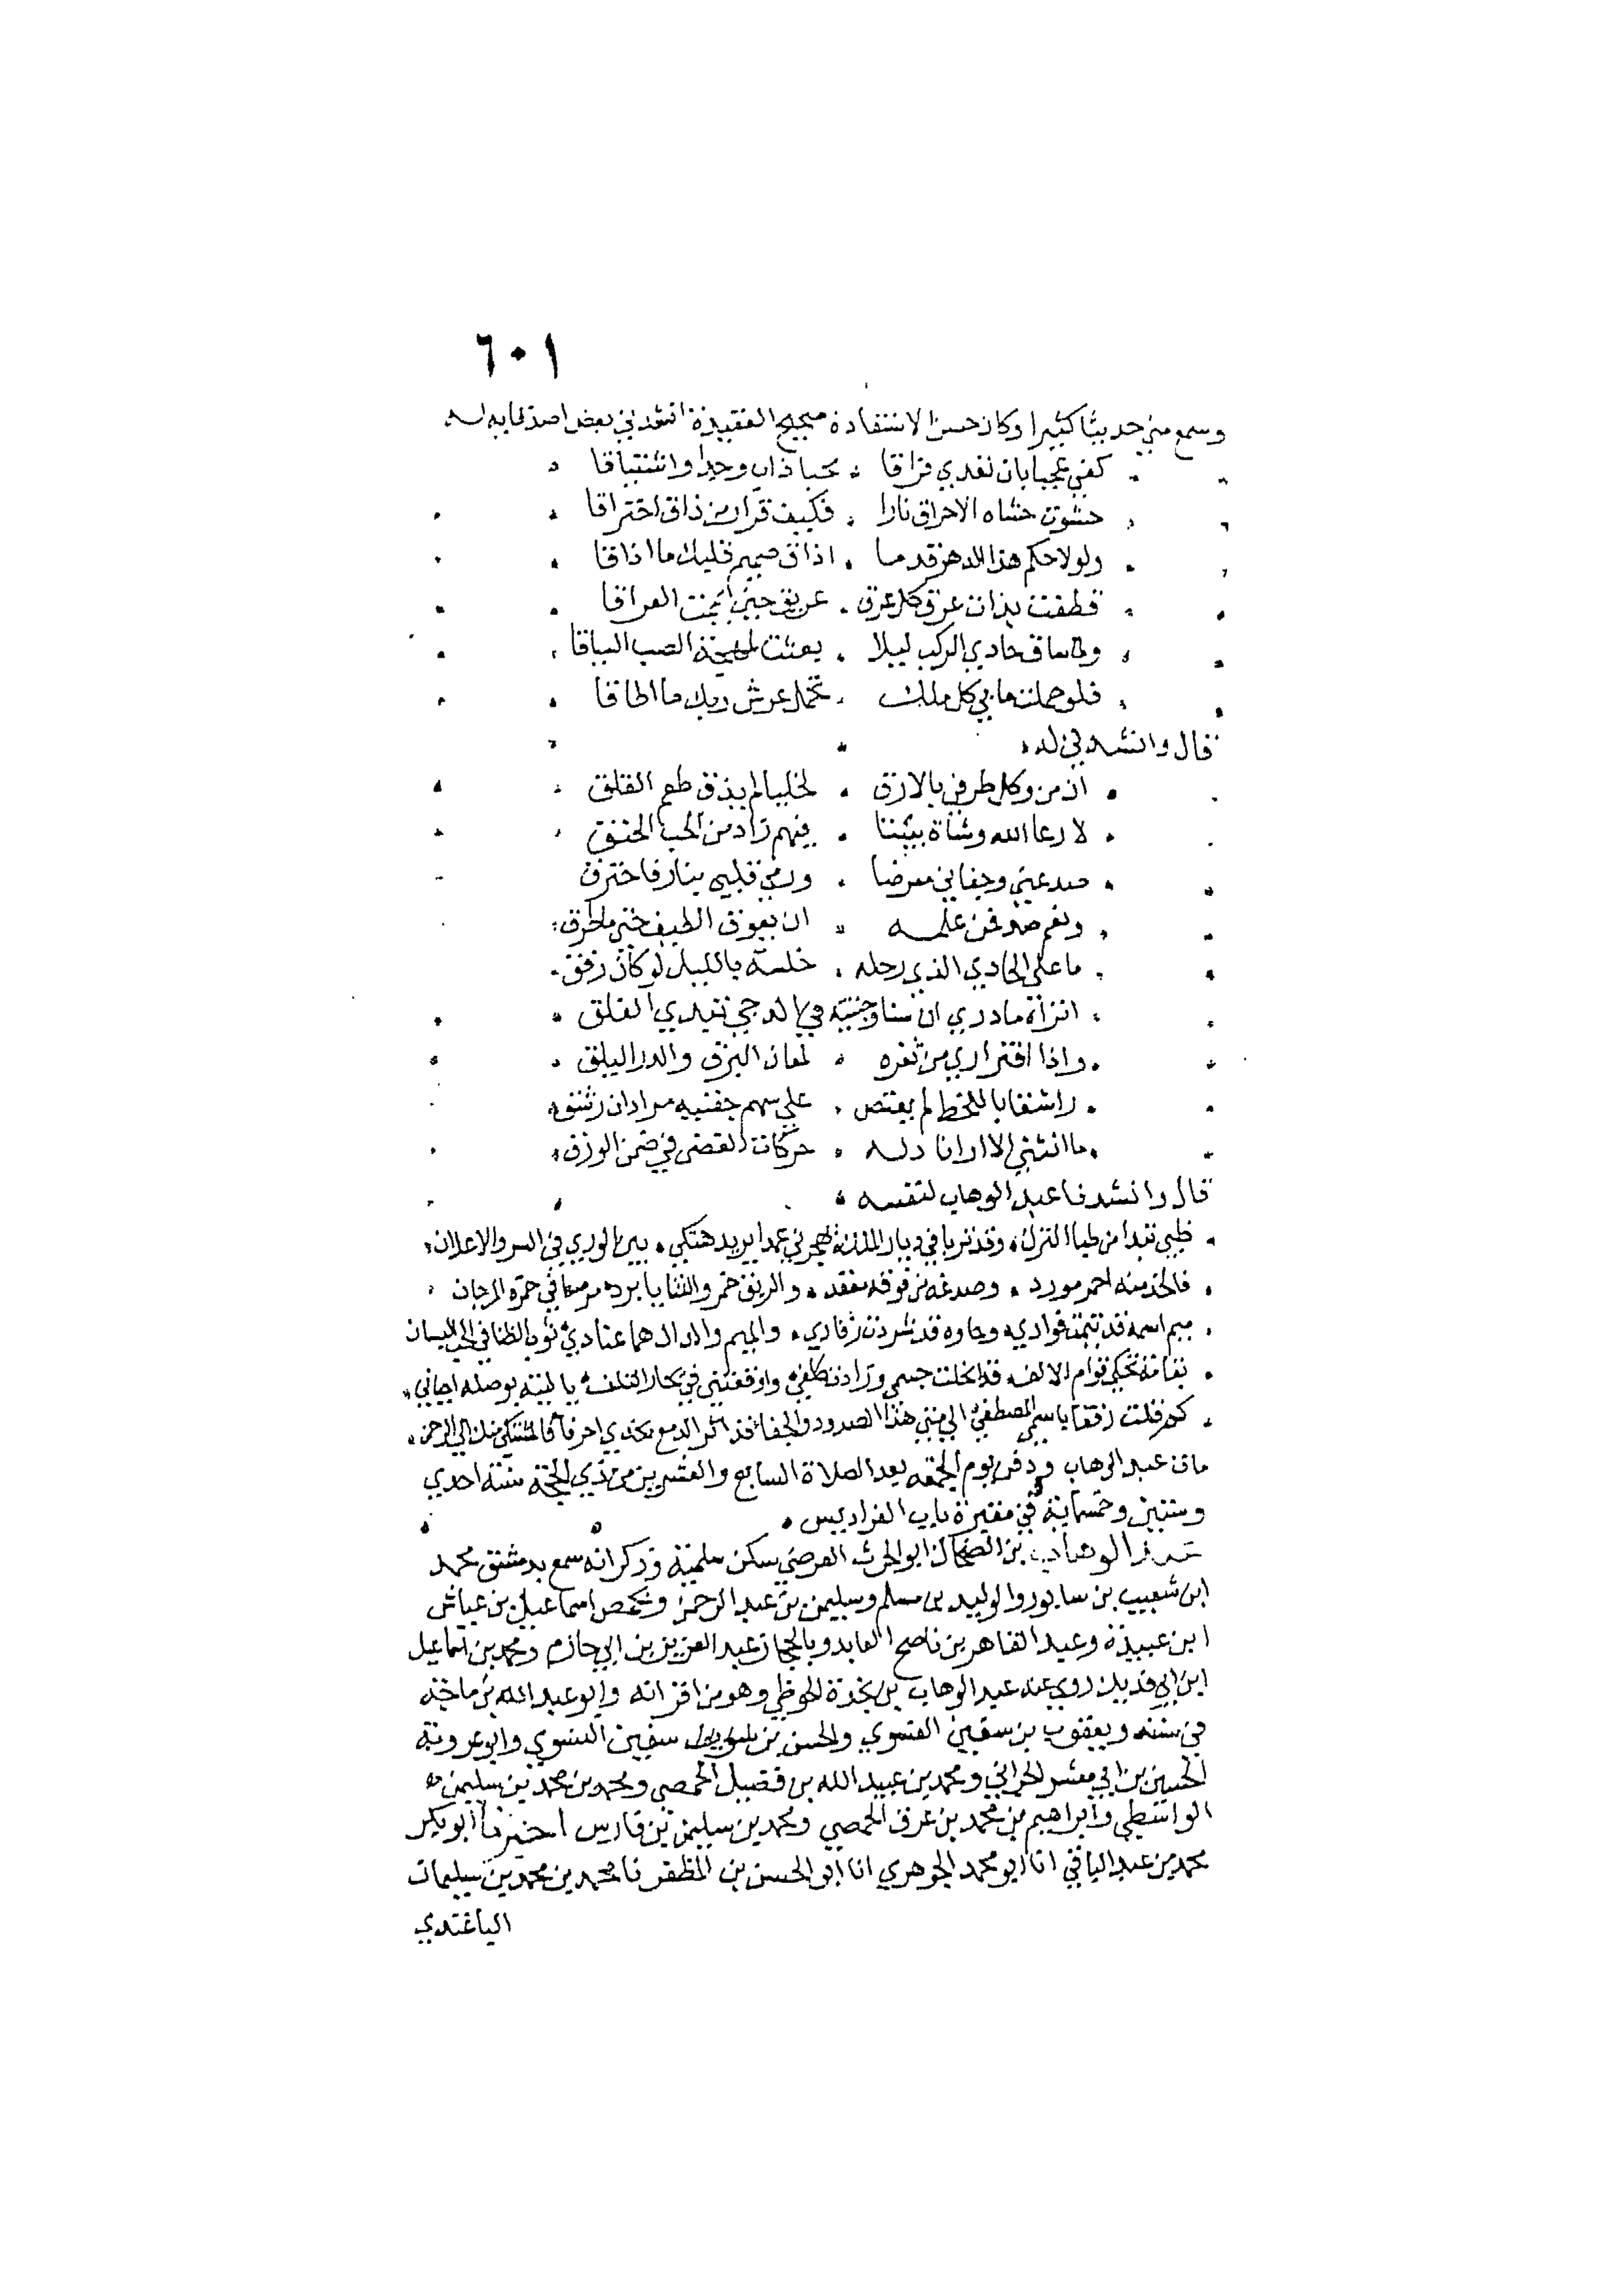 ٦٠١
وسمع مني حديثا كثيرا وكان حسن الاستفادة صحيح العقيدة انشدني بعض اصدقايه له
كفي عجبا بان نفدي فراقا محبا ذاب وجدا واشتياقا
حشوت حشاه الاحراق نارا فكيف قرار من ذاق احتراقا
ولولا حكم هذا الدهر قدما اذاق صميم قلبك ما اذاقا
قطعت بذات عرق كل عرق عريق حين أيمنت العراقا
ولما ساق حادي الركب ليلا بعثت لمهجة الصب السياقا
فلو حملت ما بي كل ملك تحمل عرش ربك ما اطاقا
قال وانشدني له
ان من وكل طرفي بالارق لخليا لم يذق طعم القلق
لا رعا الله وشاة بيننا فيهم زاد من الحب الحنق
صد عني وجفاني معرضا ورمي قلبي بنار فاحترق
ونفي صد فمن علمه ان يعوق الطيف حتى ما طرق
ما علي الحادي الذي رحله خلسة بالليل لو كان رفق
اتراه ما دري ان سنا وجنتيه في الدجي تبدي الفلق
واذا افتر اري من ثغره لمعان البرق والدر اليلق
راشقا باللحظ لم يعتص علي سهم جفنيه مراد ان رشق
ما انثني الا ارانا دله حركات الغصن في ضمن الورق
قال وانشدنا عبد الوهاب لنفسه
ظبي تبدا من ظبا الترك وقد تربا في ديار الملك هجرني عمدا يريد هتكي بين الوري في السر والاعلان
فالخد منه احمر مورد وصدغه من فوقه معقد والريق خمر والثنايا برد مرصعا في حمرة المرجان
ميم اسمه قد تيمت فوادي وحاوه قد شردت رقادي والميم والدال هما عتادي ثوب الضنا في الحب البسان
بقامة تحكي قوام الالف قد انحلت جسمي وزادت كلفي واوقعتني في بحار التلف يا ليته بوصله احياني
كم قلت رفقا يا سمي المصطفي الي متي هذا الصدود والجفا قد اثر الدمع بخدي احرفا فالمشتكي منك الي الرحمن
مات عبد الوهاب ودفن يوم الجمعه بعد الصلاة السابع والعشرين من ذي الحجة سنة احدي
وستين وخمسماية في مقبرة باب الفراديس
عبد الوهاب بن الضحاك ابو الحرث العرضي سكن سلمية وذكر انه سمع بدمشق محمد
ابن شعيب بن سابور والوليد بن مسلم وسليمن بن عبد الرحمن وبحمص اسماعيل بن عياش
ابن عبيدة وعبد القاهر بن ناصح العابد وبالحجاز عبد العزيز بن ابي حازم ومحمد بن اسماعيل
ابن ابي فديك روي عنه عبد الوهاب بن نجدة الحوطي وهو من اقرانه وابو عبد الله بن ماجه
في سننه ويعقوب بن سفين الفسوي والحسن بن سفين النسوي وابو عروبة
الحسين بن ابي معشر الحراني ومحمد بن عبيد الله بن فضيل الحمصي ومحمد بن محمد بن سليمن
الواسطي وابراهيم بن محمد بن عرق الحمصي ومحمد بن سليمن بن فارس اخبرنا ابو بكر
محمد بن عبد الباقي انا ابو محمد الجوهري انا ابو الحسن بن المظفر نا محمد بن محمد بن سليمان
الباغندي